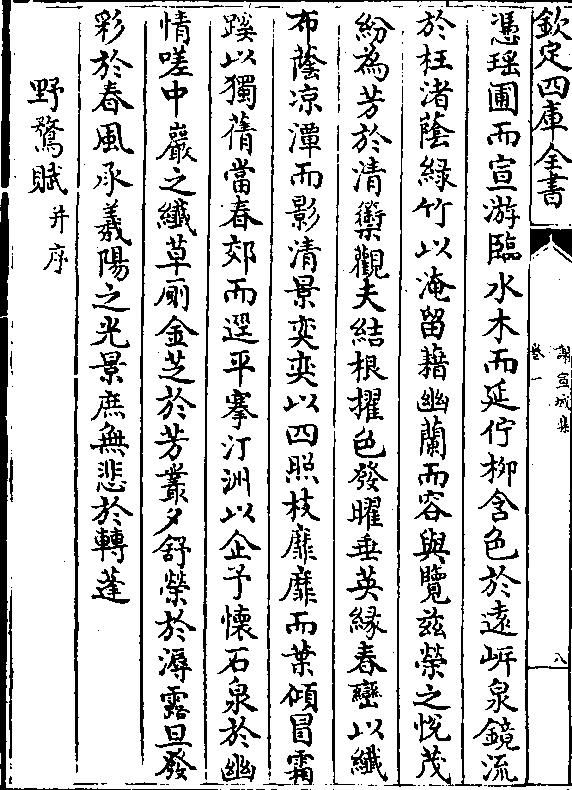 欽定四庫全書
謝宣城集
卷一
八
憑瑶圃而宣游臨水木而延佇柳含色於遠岍泉鏡流
於枉渚蔭緑竹以淹留藉幽蘭而容與覽兹榮之悦茂
紛為芳於清藥觀夫結根擢色發曜垂英緣春巒以纖
布蔭凉潭而影清景奕奕以四照枝靡靡而葉傾冒霜
蹊以獨蒨當春郊而逕平搴汀洲以企予懷石泉於幽
情嗟中巖之纎草厠金芝於芳叢夕舒榮於溽露旦發
彩於春風承羲陽之光景庶無悲於轉蓬
野鶩賦并序